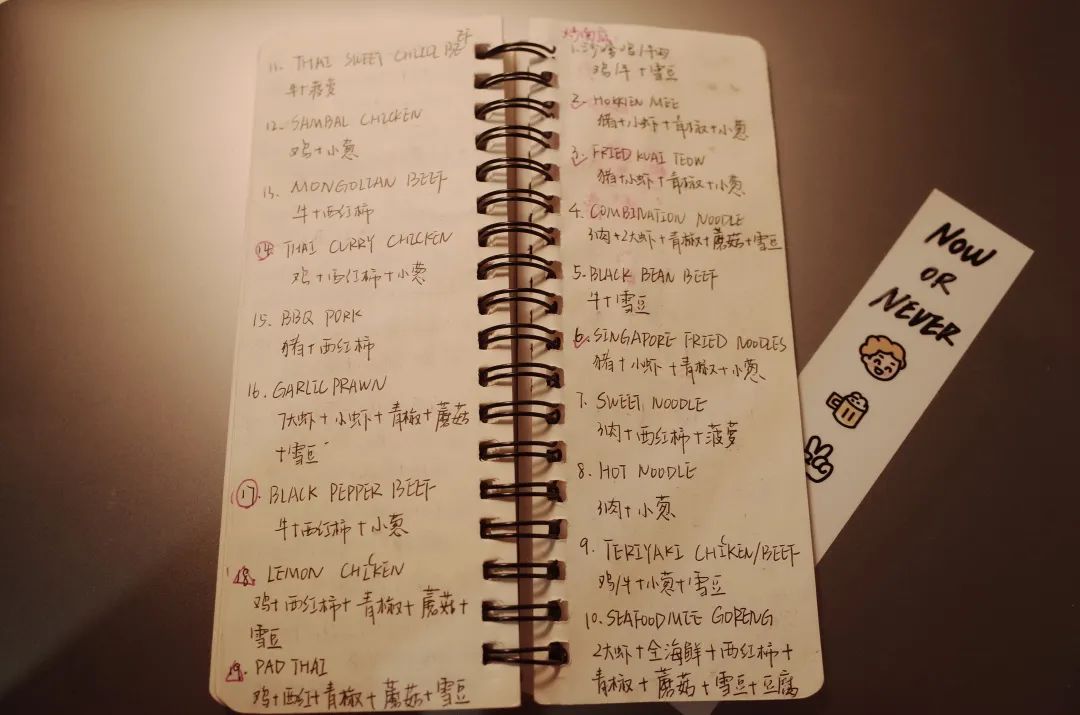 11. THAI SWEET CHILLI BEEF
牛+菠萝
12. SAMBAL CHICKEN
鸡+小葱
13. MONGOLIAN BEEF
牛+西红柿
14. THAI CURRY CHICKEN
鸡+西红柿+小葱
15. BBQ PORK
猪+西红柿
16. GARLIC PRAWN
7大虾+小虾+青椒+蘑菇
+雪豆
17. BLACK PEPPER BEEF
牛+西红柿+小葱
18. LEMON CHIKEN
鸡+西红柿+青椒+蘑菇+
雪豆
19. PAD THAI
鸡+西红+青椒+蘑菇+雪豆
1. 沙嗲鸡/牛肉
鸡/牛+雪豆
2. HOKKIEN MEE
猪+小虾+青椒+小葱
3. FRIED KUAI TEOW
猪+小虾+青椒+小葱
4. COMBINATION NOODLE
3肉+2大虾+青椒+蘑菇+雪豆
5. BLACK BEAN BEEF
牛+雪豆
6. SINGAPORE FRIED NOODLES
猪+小虾+青椒+小葱
7. SWEET NOODLE
3肉+西红柿+菠萝
8. HOT NOODLE
3肉+小葱
9. TERIYAKI CHICKEN/BEEF
鸡/牛+小葱+雪豆
10. SEAFOOD MEE GORENG
2大虾+全海鲜+西红柿+
青椒+蘑菇+雪豆+豆腐
NOW
OR
NEVER